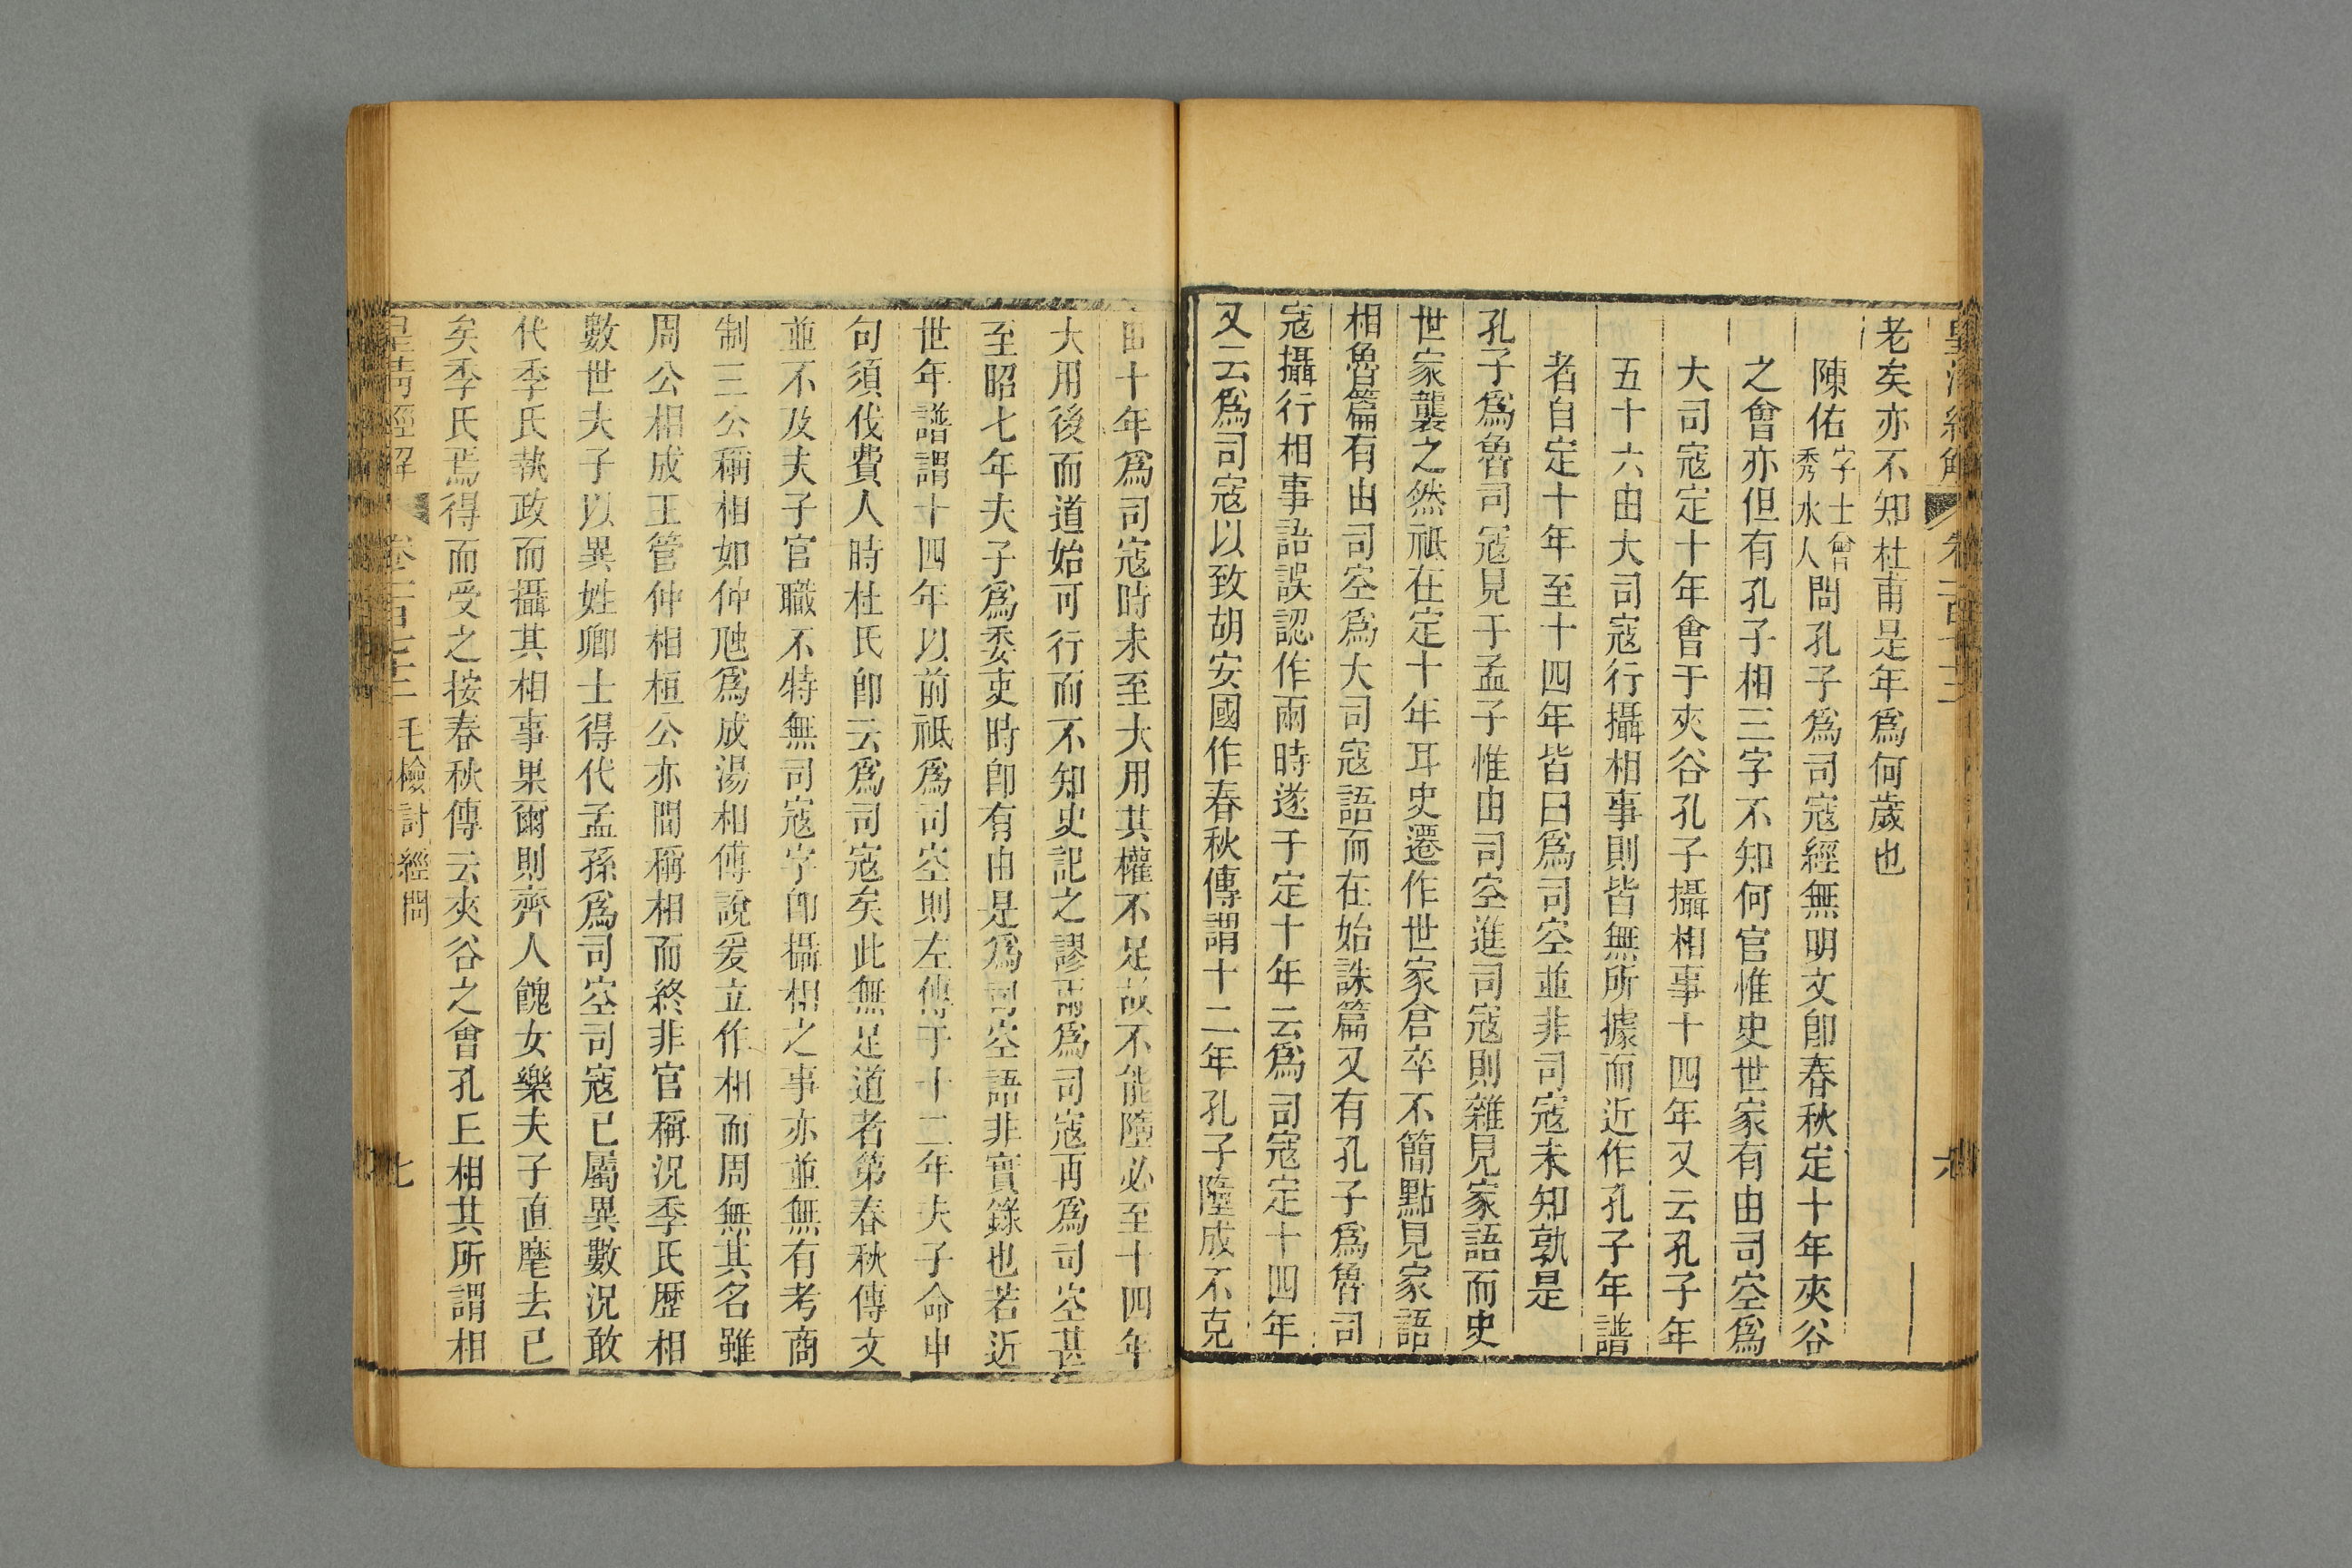 皇清經解
卷一百七十二
六
老矣亦不知杜甫是年爲何歲也
陳佑字士曾秀水人問孔子爲司寇經無明文卽春秋定十年夾谷
之會亦但有孔子相三字不知何官惟史世家有由司空爲
大司寇定十年會于夾谷孔子攝相事十四年又云孔子年
五十六由大司寇行攝相事則皆無所據而近作孔子年譜
者自定十年至十四年皆曰爲司空並非司寇未知孰是
孔子爲魯司寇見于孟子惟由司空進司寇則雜見家語而史
世家襲之然祇在定十年耳史遷作世家倉卒不簡點見家語
相魯篇有由司空爲大司寇語而在始誅篇又有孔子爲魯司
寇攝行相事語誤認作兩時遂于定十年云爲司寇定十四年
又云爲司寇以致胡安國作春秋傳謂十二年孔子隳成不克
由十年爲司寇時未至大用其權不足故不能隳必至十四年
大用後而道始可行而不知史記之謬兩爲司寇再爲司空甚
至昭七年夫子爲委吏時卽有由是爲司空語非實錄也若近
世年譜謂十四年以前祇爲司空則左傳于十二年夫子命申
句須伐費人時杜氏卽云爲司寇矣此無足道者第春秋傳文
並不及夫子官職不特無司寇字卽攝相之事亦並無有考商
制三公稱相如仲虺爲成湯相傅說爰立作相而周無其名雖
周公相成王管仲相桓公亦間稱相而終非官稱況季氏歷相
數世夫子以異姓卿士得代孟孫爲司空司寇已屬異數況敢
代季氏執政而攝其相事果爾則齊人餽女樂夫子直麾去已
矣季氏焉得而受之按春秋傳云夾谷之會孔丘相其所謂相
皇清經解
卷一百七十二
毛檢討經問
七